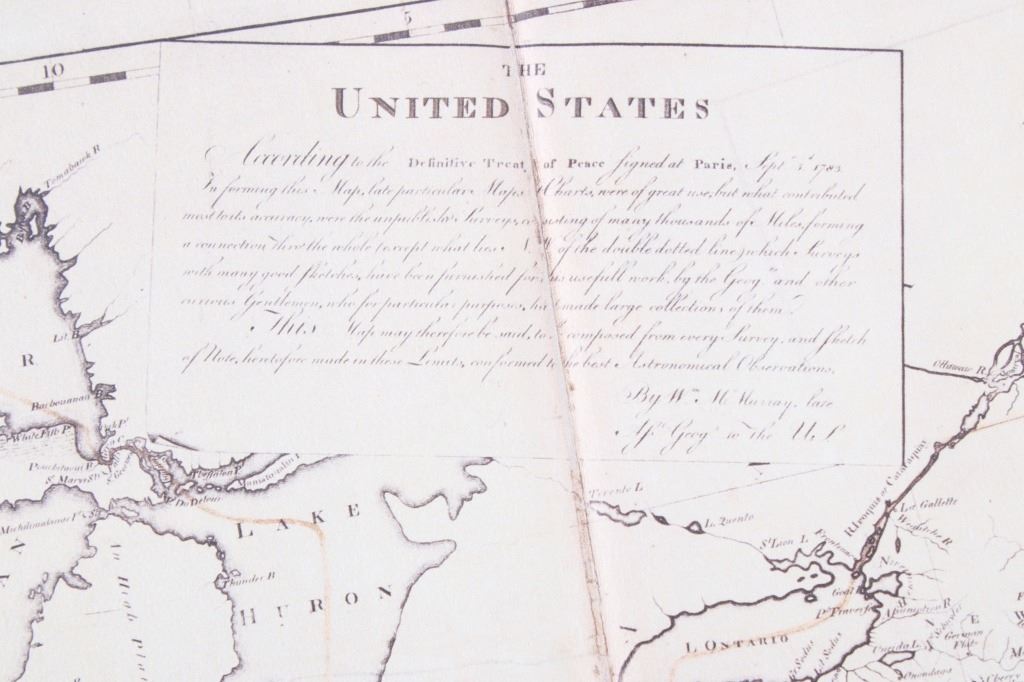 5
10
THE
UNITED STATES
According to the Definitive Treaty of Peace Signed at Paris, Sept. 3d. 1783.
In forming this Map, late particular Maps & Charts, were of great use, but what contributed
most to its accuracy, were the unpublish'd Surveys, consisting of many thousands of Miles, forming
a connection thro' the whole (except what lies N. W. of the double dotted line) which Surveys
with many good Sketches, have been furnished for this usefull work, by the Geogrs. and other
curious Gentlemen, who for particular purposes, had made large collections of them.
This Map may therefore be said, to be composed from every Survey, and Sketch
of Note, heretofore made in these Limits, conformed to the best Astronomical Observations.
By Wm. McMurray, late
Asst. Geogr. to the U.S.
Ottawais R.
R
White Fish P.
St. Marys
LAKE
HURON
Toronto L.
L. Quento
St. Lion I.
R Iroquis or Cataraquy
La Gallette
L ONTARIO
Oneida L.
German Flat
Onondaga